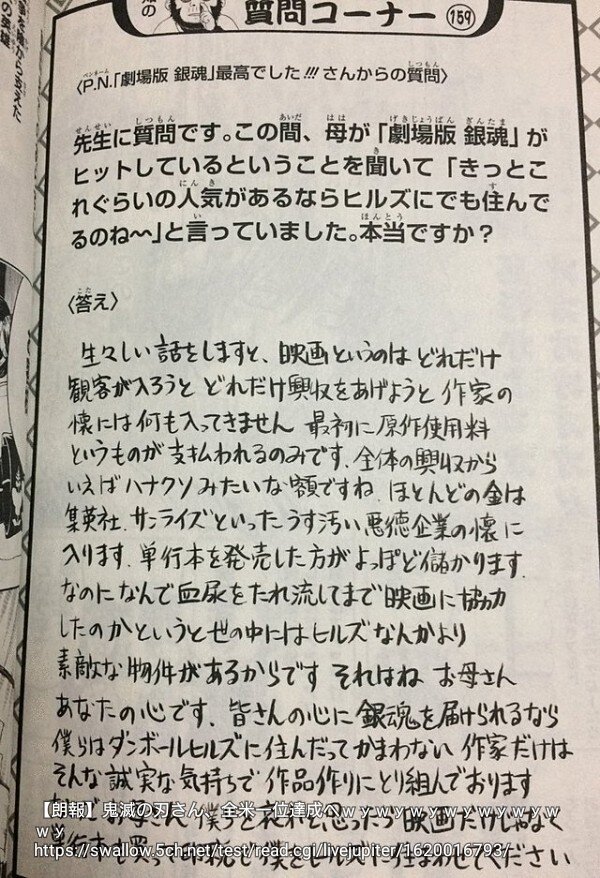 質問コーナー 159
〈P.N.「劇場版 銀魂」最高でした!!! さんからの質問〉
先生に質問です。この間、母が「劇場版 銀魂」が
ヒットしているということを聞いて「きっとこ
れぐらいの人気があるならヒルズにでも住んで
るのね〜〜」と言っていました。本当ですか？
〈答え〉
生々しい話をしますと、映画というのは どれだけ
観客が入ろうと どれだけ興収をあげようと 作家の
懐には何も入ってきません 最初に原作使用料
というものが支払われるのみです、全体の興収から
いえばハナクソみたいな額ですね、ほとんどの金は
集英社、サンライズといったうす汚い悪徳企業の懐に
入ります、単行本を発売した方がよっぽど儲かります、
なのになんで血尿をたれ流してまで映画に協力
したのかというと世の中にはヒルズなんかより
素敵な物件があるからです それはね お母さん
あなたの心です、皆さんの心に銀魂を届けられるなら
僕らはダンボールヒルズに住んだってかまわない 作家だけは
そんな誠実な気持ちで 作品作りにとり組んでおります
【朗報】鬼滅の刃さん、全米一位達成へｗｙｗｙｗｙｗｙｗｙｗ
ｗｙ
お母さん 僕らを
映画だけじゃなく
https://swallow.5ch.net/test/read.cgi/livejupiter/1620016793/
僕をヒルズに住まわせてください